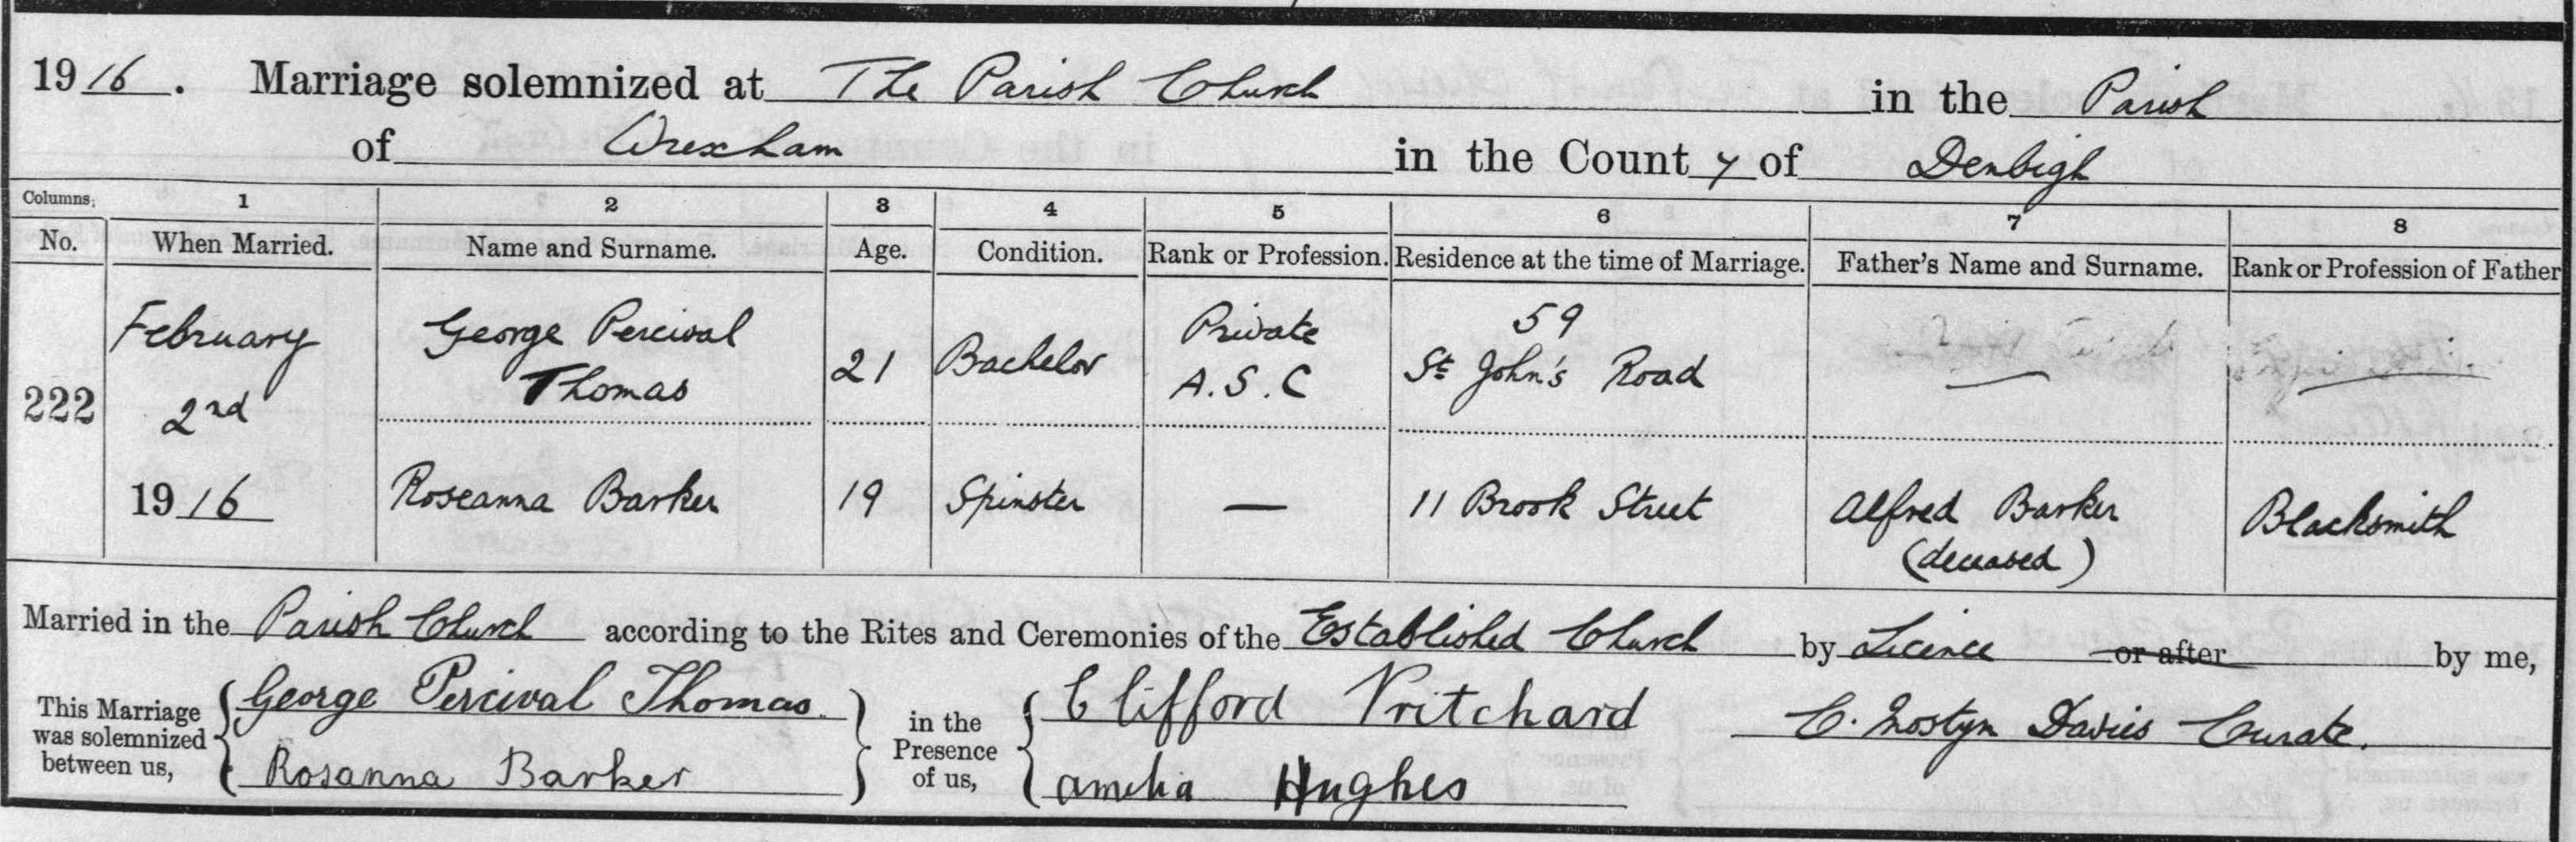 1916. Marriage solemnized at The Parish Church in the Parish
of Wrexham in the County of Denbigh
Columns, 1 2 3 4 5 6 7 8
No. When Married. Name and Surname. Age. Condition. Rank or Profession. Residence at the time of Marriage. Father's Name and Surname. Rank or Profession of Father
222
February
2nd
1916
George Percival
Thomas
21
Bachelor
Private
A.S.C
59
St John's Road
—
—
Roseanna Barker
19
Spinster
—
11 Brook Street
Alfred Barker
(deceased)
Blacksmith
Married in the Parish Church according to the Rites and Ceremonies of the Established Church by Licence or after by me,
This Marriage
was solemnized
between us,
George Percival Thomas
Rosanna Barker
in the
Presence
of us,
Clifford Pritchard
Amelia Hughes
C. Mostyn Davies Curate.